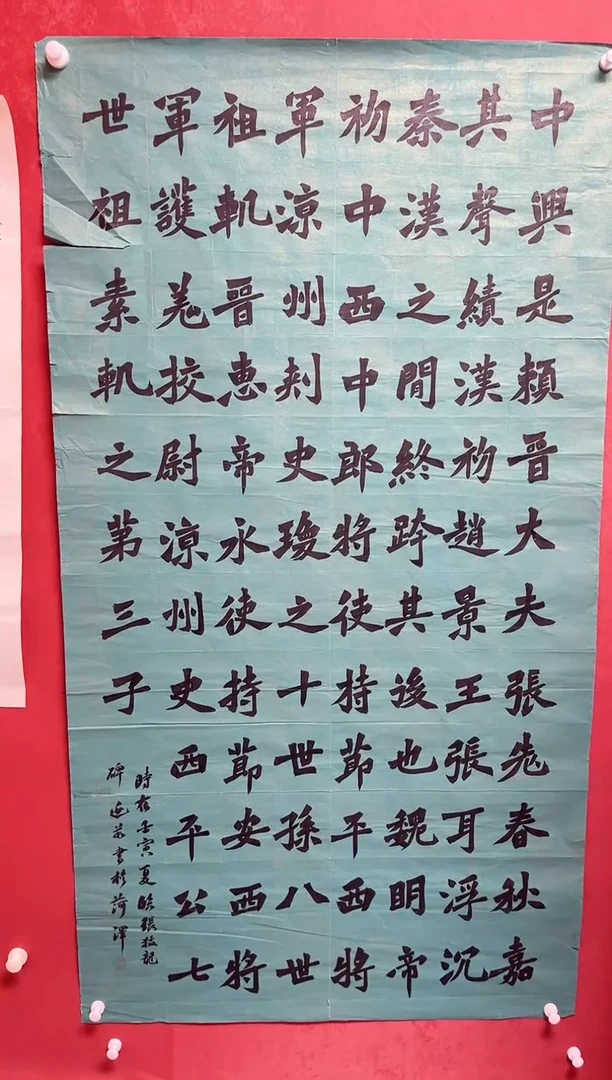 中興是賴晉大夫張老春秋嘉
其聲績漢初趙景王張耳浮沉
秦漢之間終跨其後也魏明帝
初中西中郎將使持節平西將
軍涼州刺史瓊之十世孫八世
祖軌晉惠帝永使持節安西將
軍護羌挍尉涼州史西平公七
世祖素軌之第三子
時在壬寅夏臨張猛龍
碑 書於菏澤